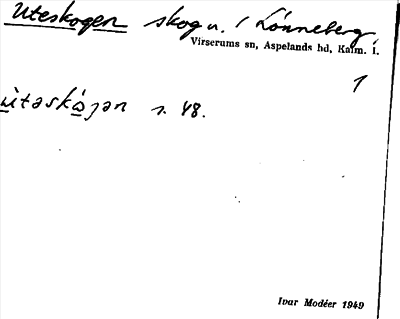 Uteskogen skog u. / Lönneberg.
Virserums sn, Aspelands hd, Kalm. l.
1
ùtəskóɡən s. 48.
Ivar Modéer 1949